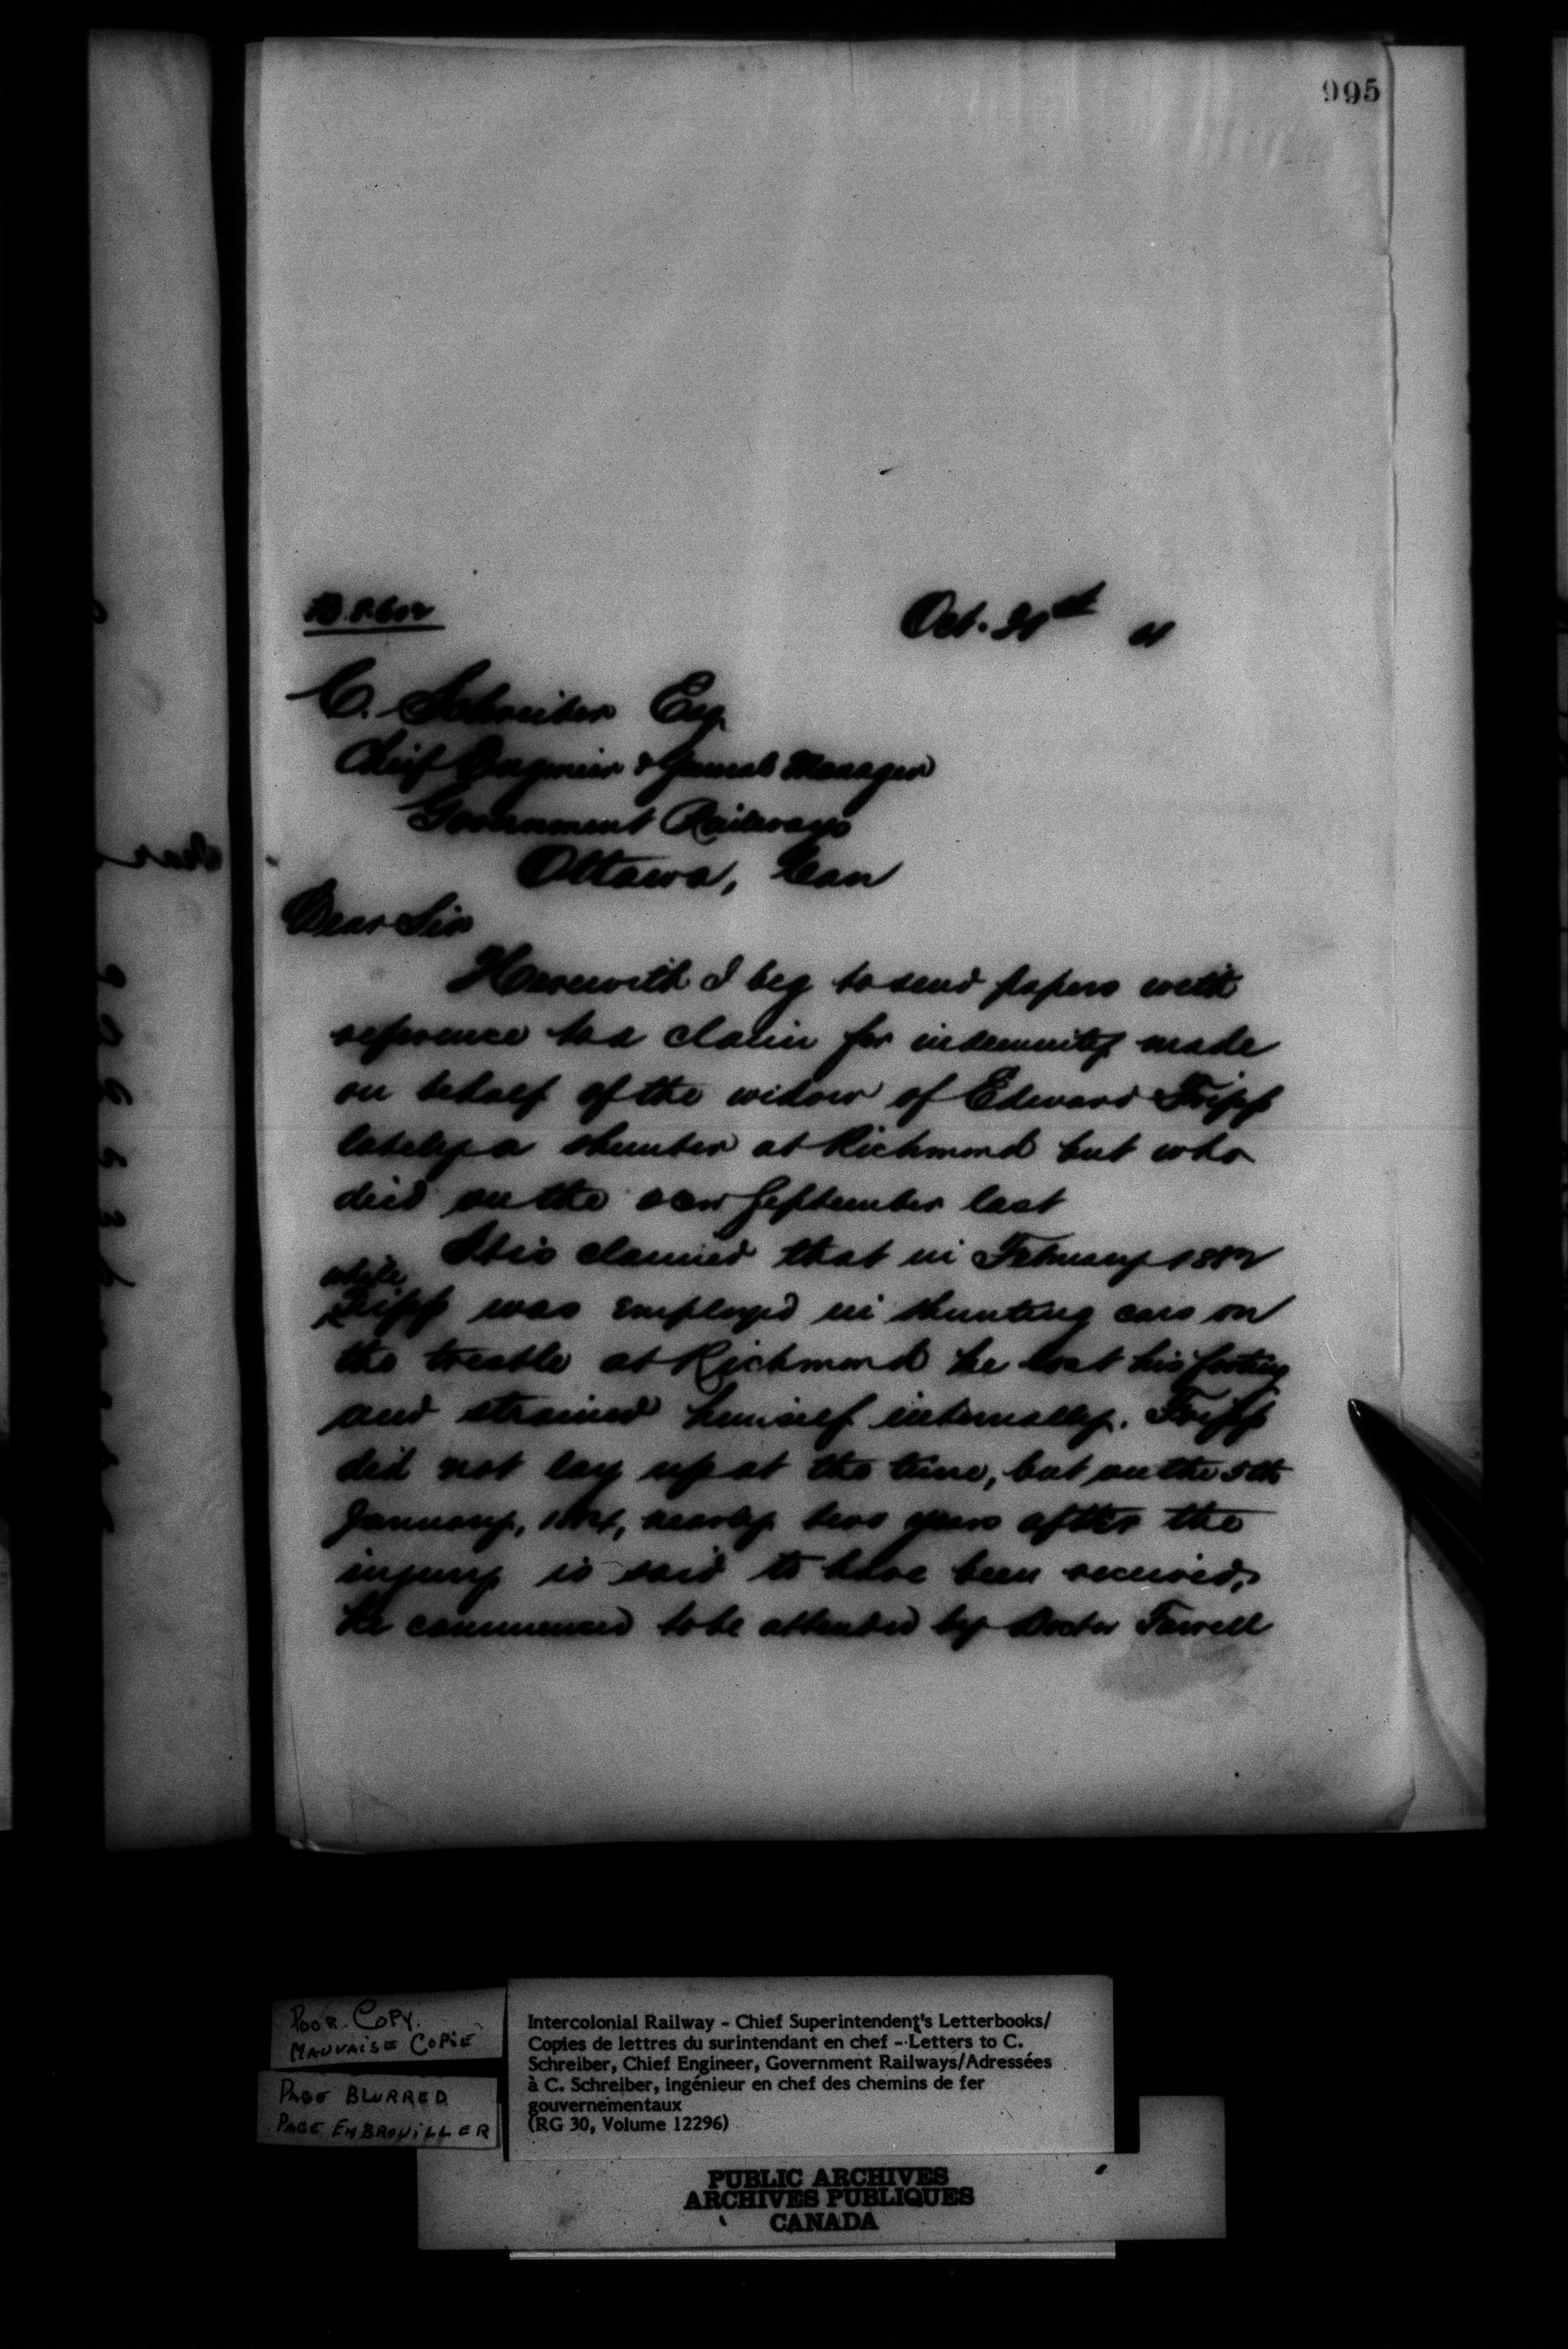 995
Oct. 31st
C. Schreiber Esq
Chief Engineer & General Manager
Government Railways
Ottawa, Can
Dear Sir
Herewith I beg to send papers with
reference to a claim for indemnity made
on behalf of the widow of Edward Tripp
lately a shunter at Richmond but who
died on the September last
It is claimed that in February 1882
while
Tripp was employed in shunting cars on
the trestle at Richmond he lost his footing
and strained himself internally. Tripp
did not lay up at the time, but on the 5th
January, 1884, nearly two years after the
injury is said to have been received,
he commenced to be attended by Doctor Farrell
POOR COPY.
MAUVAISE COPIE
PAGE BLURRED
PAGE EMBROUILLER
Intercolonial Railway - Chief Superintendent's Letterbooks/
Copies de lettres du surintendant en chef - Letters to C.
Schreiber, Chief Engineer, Government Railways/Adressées
à C. Schreiber, ingénieur en chef des chemins de fer
gouvernementaux
(RG 30, Volume 12296)
PUBLIC ARCHIVES
ARCHIVES PUBLIQUES
CANADA